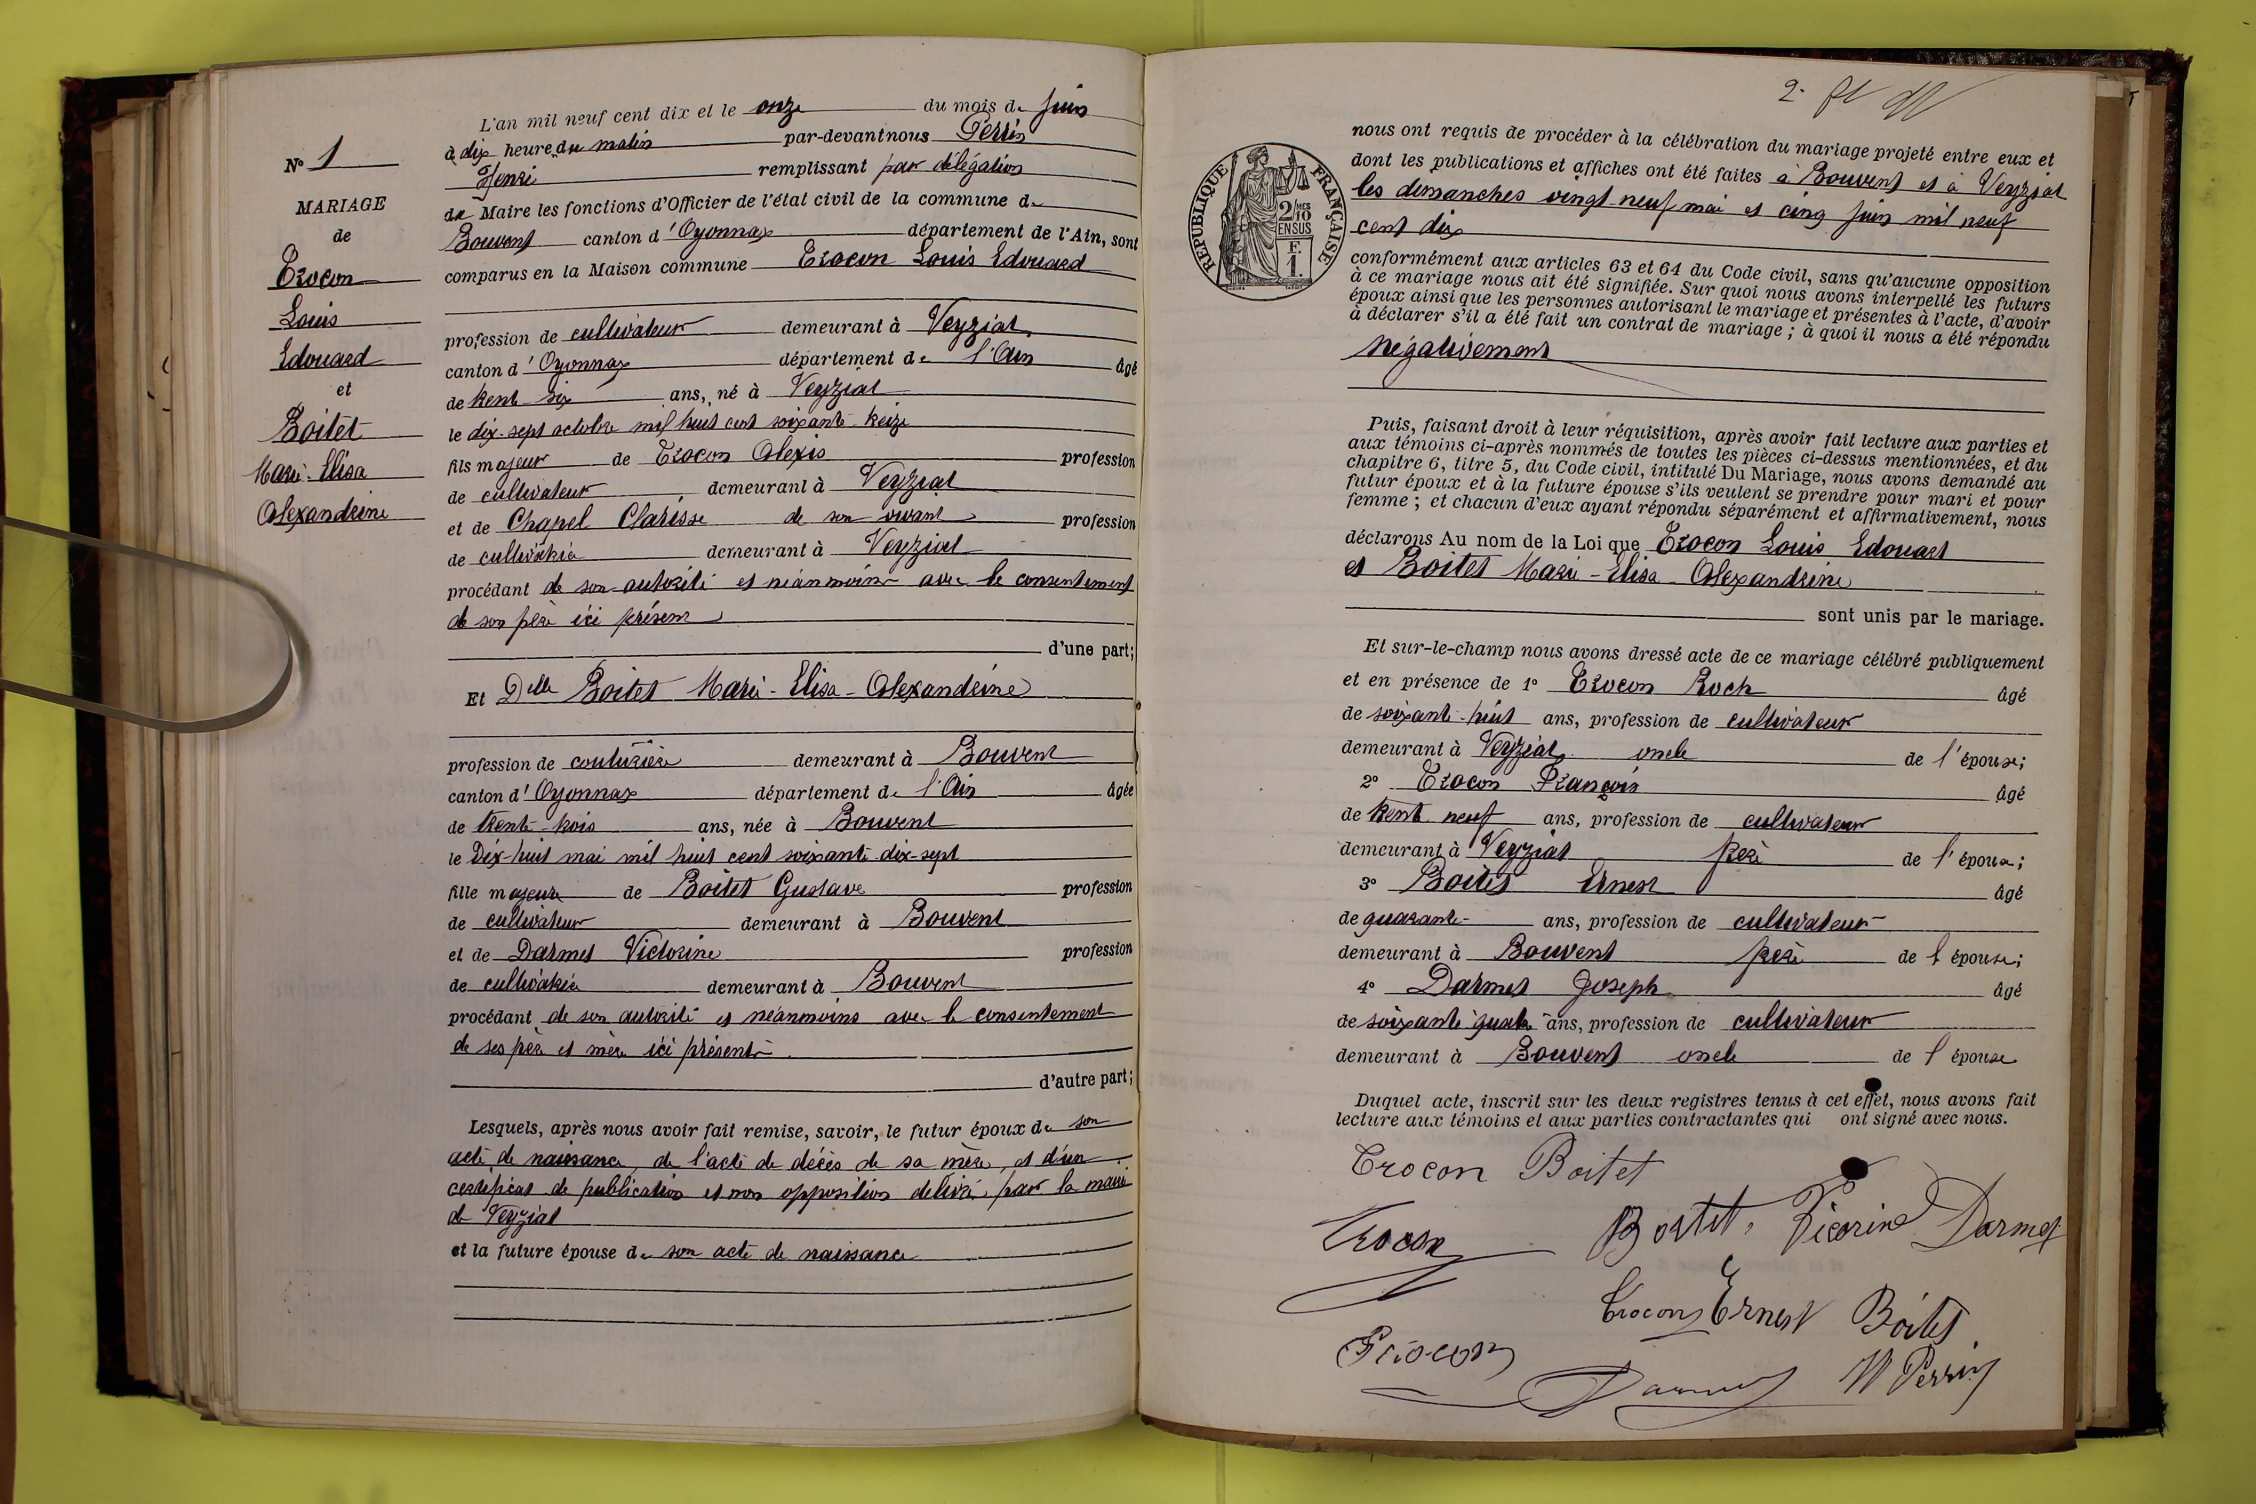 N° 1
MARIAGE
de
Trocon
Louis
Edouard
et
Boitet
Marie-Elisa
Alexandrine
L'an mil neuf cent dix et le onze du mois de Juin
à dix heures du matin par-devant nous Perrin
Henri remplissant par délégation
de Maire les fonctions d'Officier de l'état civil de la commune de
Bouvent canton d'Oyonnax département de l'Ain, sont
comparus en la Maison commune Trocon Louis Edouard
profession de cultivateur demeurant à Veyziat
canton d'Oyonnax département de l'Ain âgé
de trente six ans, né à Veyziat
le dix-sept octobre mil huit cent soixante treize
fils majeur de Trocon Alexis profession
de cultivateur demeurant à Veyziat
et de Chapel Clarisse de son vivant profession
de cultivatrice demeurant à Veyziat
procédant de son autorité et néanmoins avec le consentement
de son père ici présent
d'une part;
Et Delle Boitet Marie-Elisa-Alexandrine
profession de couturière demeurant à Bouvent
canton d'Oyonnax département de l'Ain âgée
de trente-trois ans, née à Bouvent
le Dix-huit mai mil huit cent soixante-dix-sept
fille majeure de Boitet Gustave profession
de cultivateur demeurant à Bouvent
et de Darmet Victorine profession
de cultivatrice demeurant à Bouvent
procédant de son autorité et néanmoins avec le consentement
de ses père et mère ici présents
d'autre part;
Lesquels, après nous avoir fait remise, savoir, le futur époux de son
acte de naissance, de l'acte de décès de sa mère, et d'un
certificat de publication et non opposition délivré par la mairie
de Veyziat
et la future épouse de son acte de naissance
2.
RÉPUBLIQUE FRANÇAISE
2/10 MES
EN SUS
F
1.
nous ont requis de procéder à la célébration du mariage projeté entre eux et
dont les publications et affiches ont été faites à Bouvent et à Veyziat
les dimanches vingt-neuf mai et cinq juin mil neuf
cent dix
conformément aux articles 63 et 64 du Code civil, sans qu'aucune opposition
à ce mariage nous ait été signifiée. Sur quoi nous avons interpellé les futurs
époux ainsi que les personnes autorisant le mariage et présentes à l'acte, d'avoir
à déclarer s'il a été fait un contrat de mariage; à quoi il nous a été répondu
négativement
Puis, faisant droit à leur réquisition, après avoir fait lecture aux parties et
aux témoins ci-après nommés de toutes les pièces ci-dessus mentionnées, et du
chapitre 6, titre 5, du Code civil, intitulé Du Mariage, nous avons demandé au
futur époux et à la future épouse s'ils veulent se prendre pour mari et pour
femme; et chacun d'eux ayant répondu séparément et affirmativement, nous
déclarons Au nom de la Loi que Trocon Louis Edouart
et Boitet Marie-Elisa-Alexandrine
sont unis par le mariage.
Et sur-le-champ nous avons dressé acte de ce mariage célébré publiquement
et en présence de 1° Trocon Roch âgé
de soixante-huit ans, profession de cultivateur
demeurant à Veyziat oncle de l'épouse;
2° Trocon François âgé
de trente neuf ans, profession de cultivateur
demeurant à Veyziat frère de l'époux;
3° Boitet Ernest âgé
de quarante ans, profession de cultivateur
demeurant à Bouvent frère de l'épouse;
4° Darmet Joseph âgé
de soixante quatre ans, profession de cultivateur
demeurant à Bouvent oncle de l'épouse
Duquel acte, inscrit sur les deux registres tenus à cet effet, nous avons fait
lecture aux témoins et aux parties contractantes qui ont signé avec nous.
Trocon Boitet
Trocon Boitet Vicorine Darmet
Trocon Ernest Boitet
Trocon Darmet H Perrin